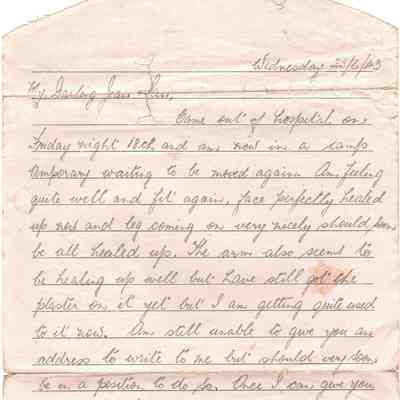 Wednesday 23/6/43
My Darling Jean & Les,
Came out of hospital on
Friday night 18th and am now in a camp
temporary waiting to be moved again. Am feeling
quite well and fit again, face perfectly healed
up now and leg coming on very nicely should soon
be all healed up. The arm also seems to
be healing up well but have still got the
plaster on it yet but I am getting quite used
to it now. Am still unable to give you an
address to write to me but should very soon
be in a position to do so. Once I can give you